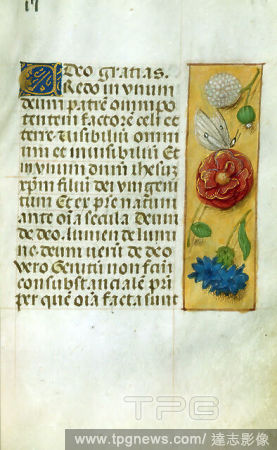 Deo gratias.
Credo in vnum
deum patrē omnipo
tentem factorē celi et
terre visibiliū omni
um et invisibiliū Et
in vnum dnm̄ ihesuz
xp̄m filiū dei vnigeni
tum Et ex pre natum
ante oīa secula Deum
de deo. lumen de lumi
ne. deum verū de deo
vero Genitū non factū
consubstancialem pr̄i
per quē oīa facta sunt
TPG
www.tpgnews.com / 達志影像